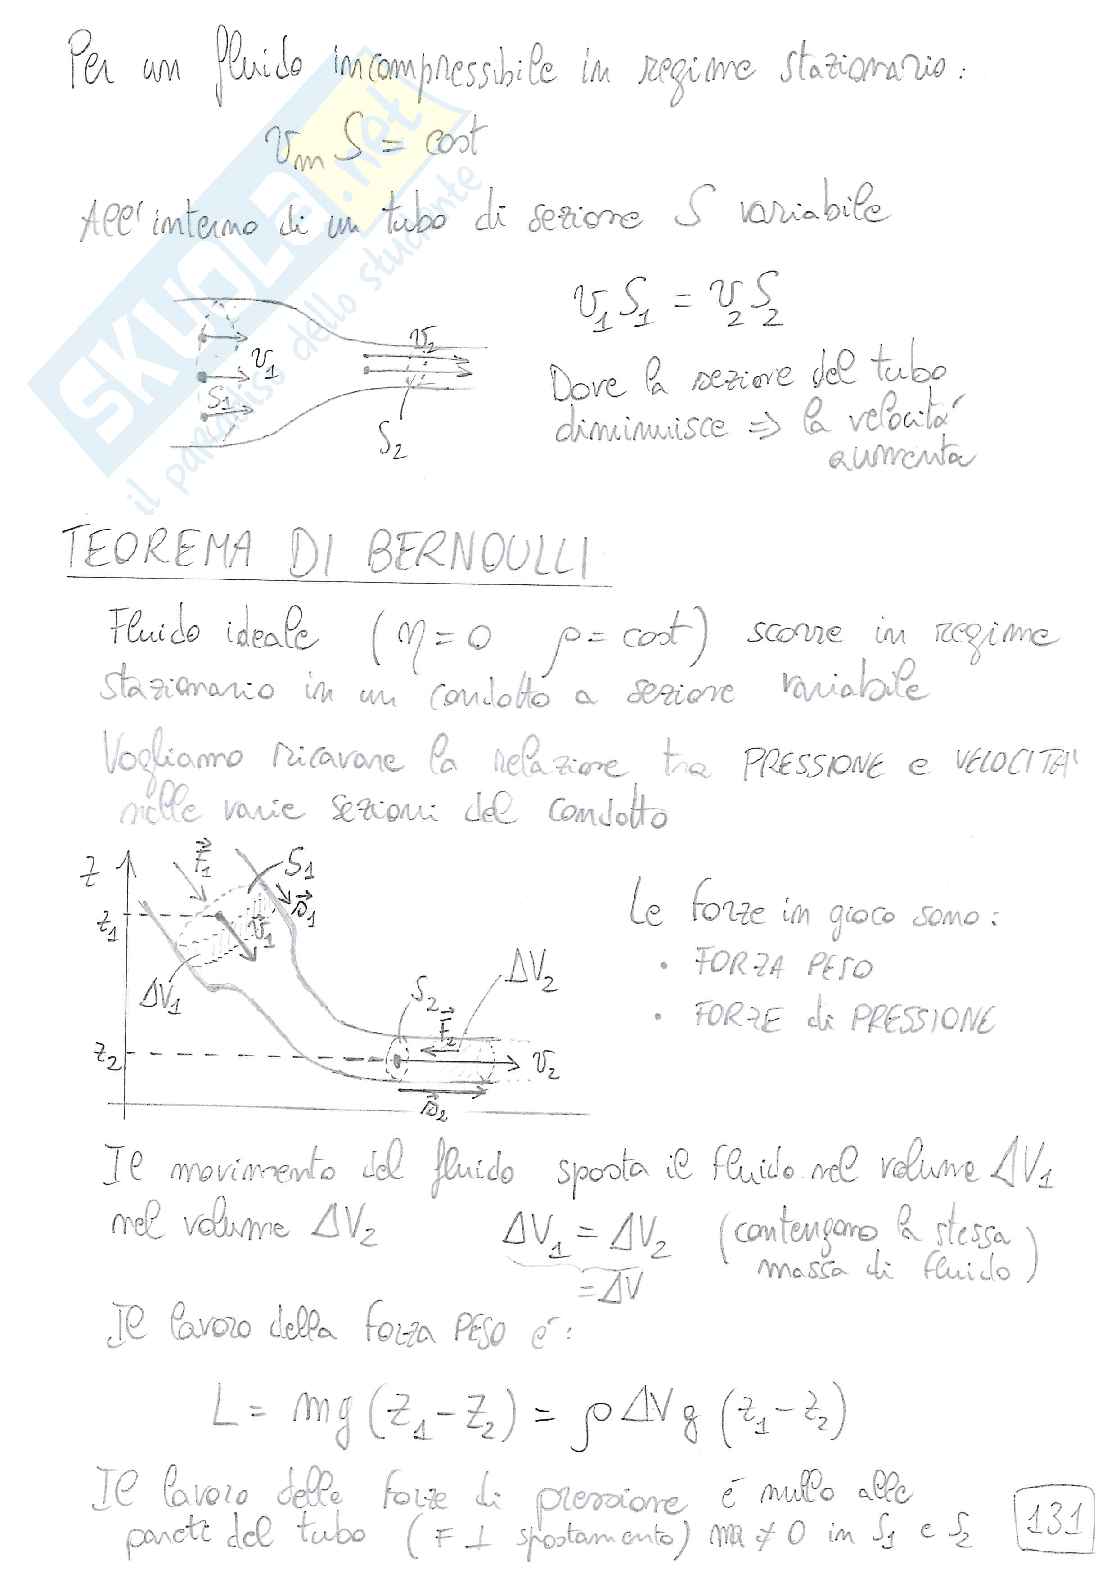 Per un fluido incompressibile in regime stazionario:
v_m S = cost
All'interno di un tubo di sezione S variabile
v_1 S_1 = v_2 S_2
v_1
v_2
S_1
S_2
Dove la sezione del tubo
diminuisce ⇒ la velocità
aumenta
TEOREMA DI BERNOULLI
Fluido ideale (η=0 ρ=cost) scorre in regime
stazionario in un condotto a sezione variabile
Vogliamo ricavare la relazione tra PRESSIONE e VELOCITA'
nelle varie sezioni del condotto
z
F_1
S_1
z_1
v_1
s_1
ΔV_1
S_2
ΔV_2
F_2
z_2
v_2
s_2
Le forze in gioco sono:
• FORZA PESO
• FORZE di PRESSIONE
Il movimento del fluido sposta il fluido nel volume ΔV_1
nel volume ΔV_2 ΔV_1 = ΔV_2 (contengono la stessa
massa di fluido)
= ΔV
Il lavoro della forza PESO è:
L = mg (z_1 - z_2) = ρ ΔV g (z_1 - z_2)
Il lavoro delle forze di pressione è nullo alle
pareti del tubo (F ⊥ spostamento) ma ≠ 0 in S_1 e S_2
131
SKUOLA.net
il paradiso dello studente